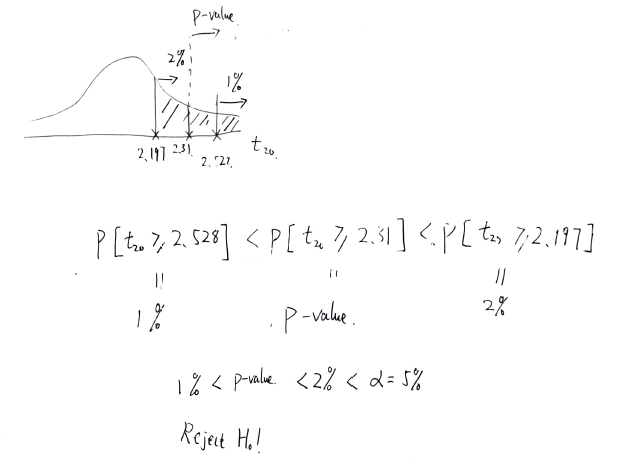 p-value
2%
1%
2.197 2.31 2.527. t₂₀.
P[t₂₀ ≥ 2.528] < P[t₂₀ ≥ 2.31] < P[t₂₀ ≥ 2.197]
|| || ||
1% p-value. 2%
1% < p-value < 2% < α = 5%
Reject H₀!